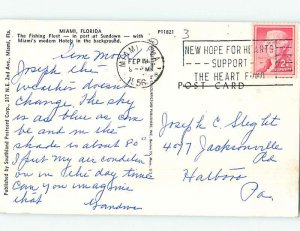 MIAMI, FLORIDA P11827
The Fishing Fleet — in port at Sundown — with
Miami's modern Hotels in the background.
Published by Southland Postcard Corp., 317 N.E. 2nd Ave., Miami, Fla.
MIAMI, FLA.
FEB
PM
1956
NEW HOPE FOR HEARTS
SUPPORT
THE HEART FUND
2¢
3
POST CARD
Joseph the
weather doesnt
change. The sky
is as blue as can
be and in the
shade is about 80
I put my air condition
on in the day time
Can you imagine
that
Grandma
Joseph C. Slight
4097 Jacksonville
Rd
Hatboro
Pa.